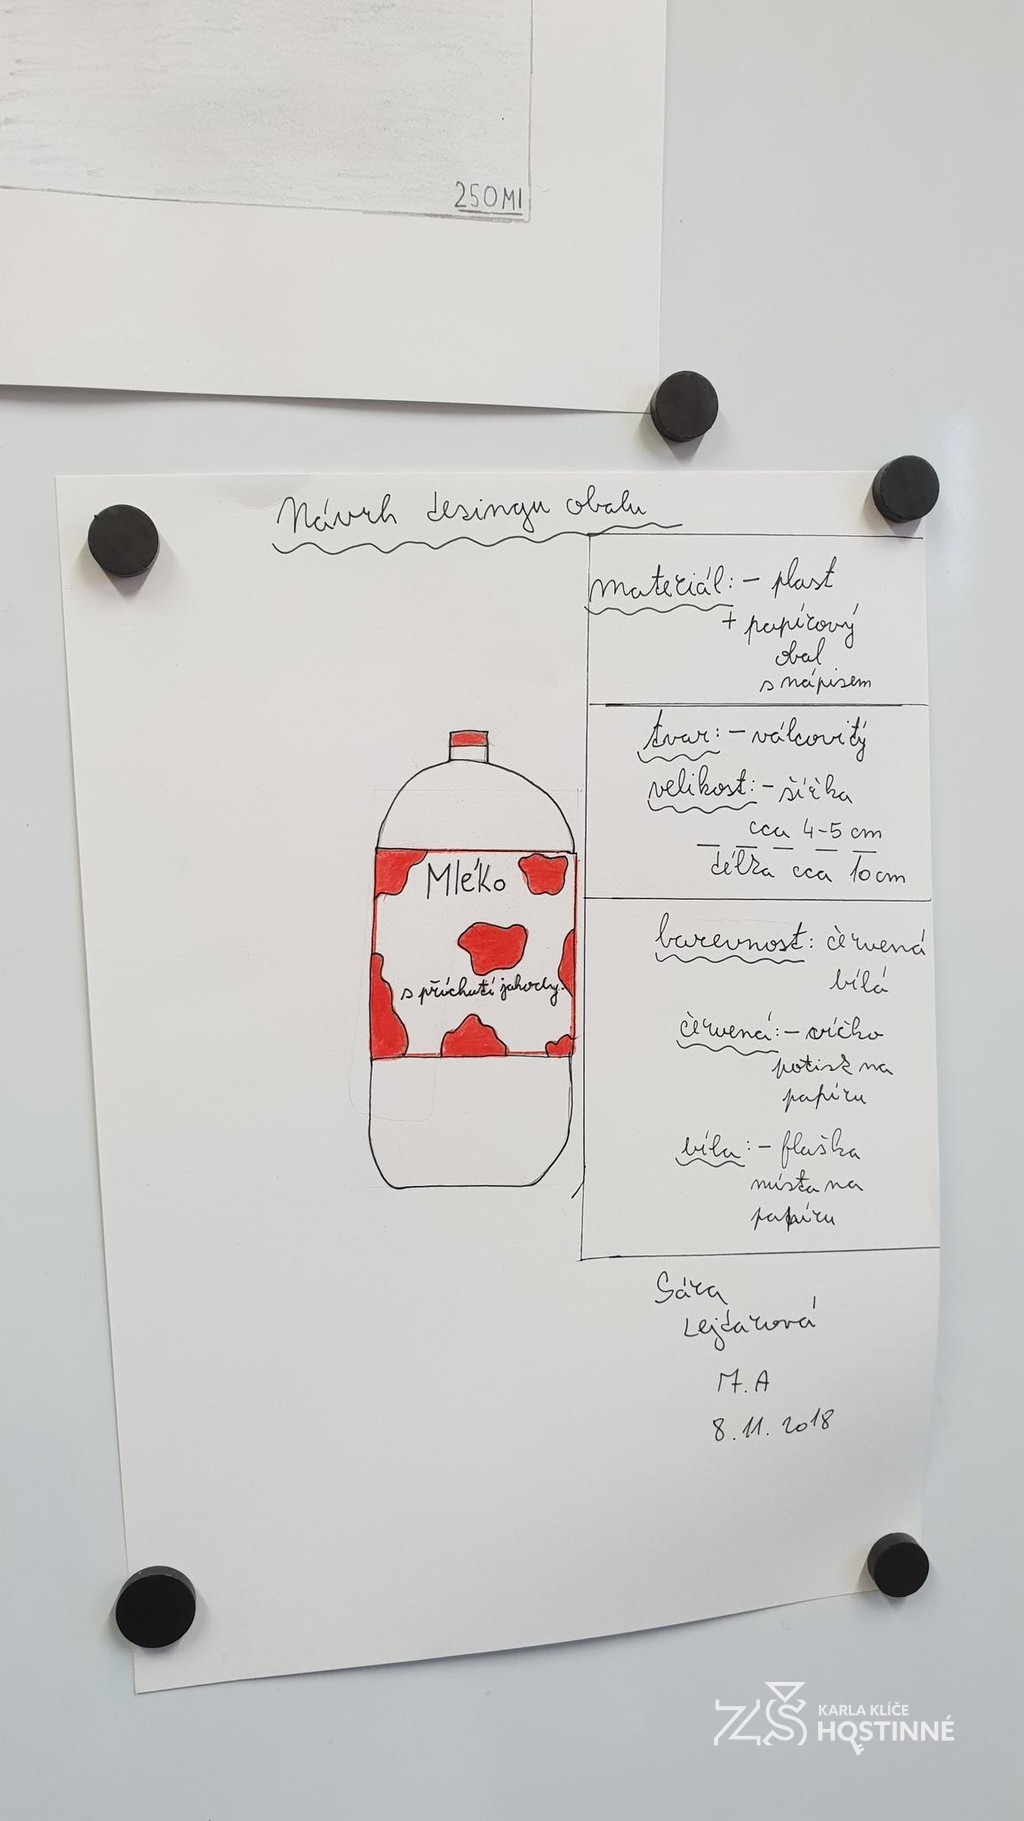 250Ml
Návrh desingu obalu
materiál: - plast
+ papírový
obal
s nápisem
tvar: - válcovitý
velikost: - šířka
cca 4-5 cm
délka cca 10 cm
barevnost: červená
bílá
červená: - víčko
potisk na
papíru
bíla: - flaška
místa na
papíru
Mléko
s příchutí jahody.
Sára
Lejdarová
7.A
8.11.2018
ZŠ KARLA KLÍČE
HOSTINNÉ